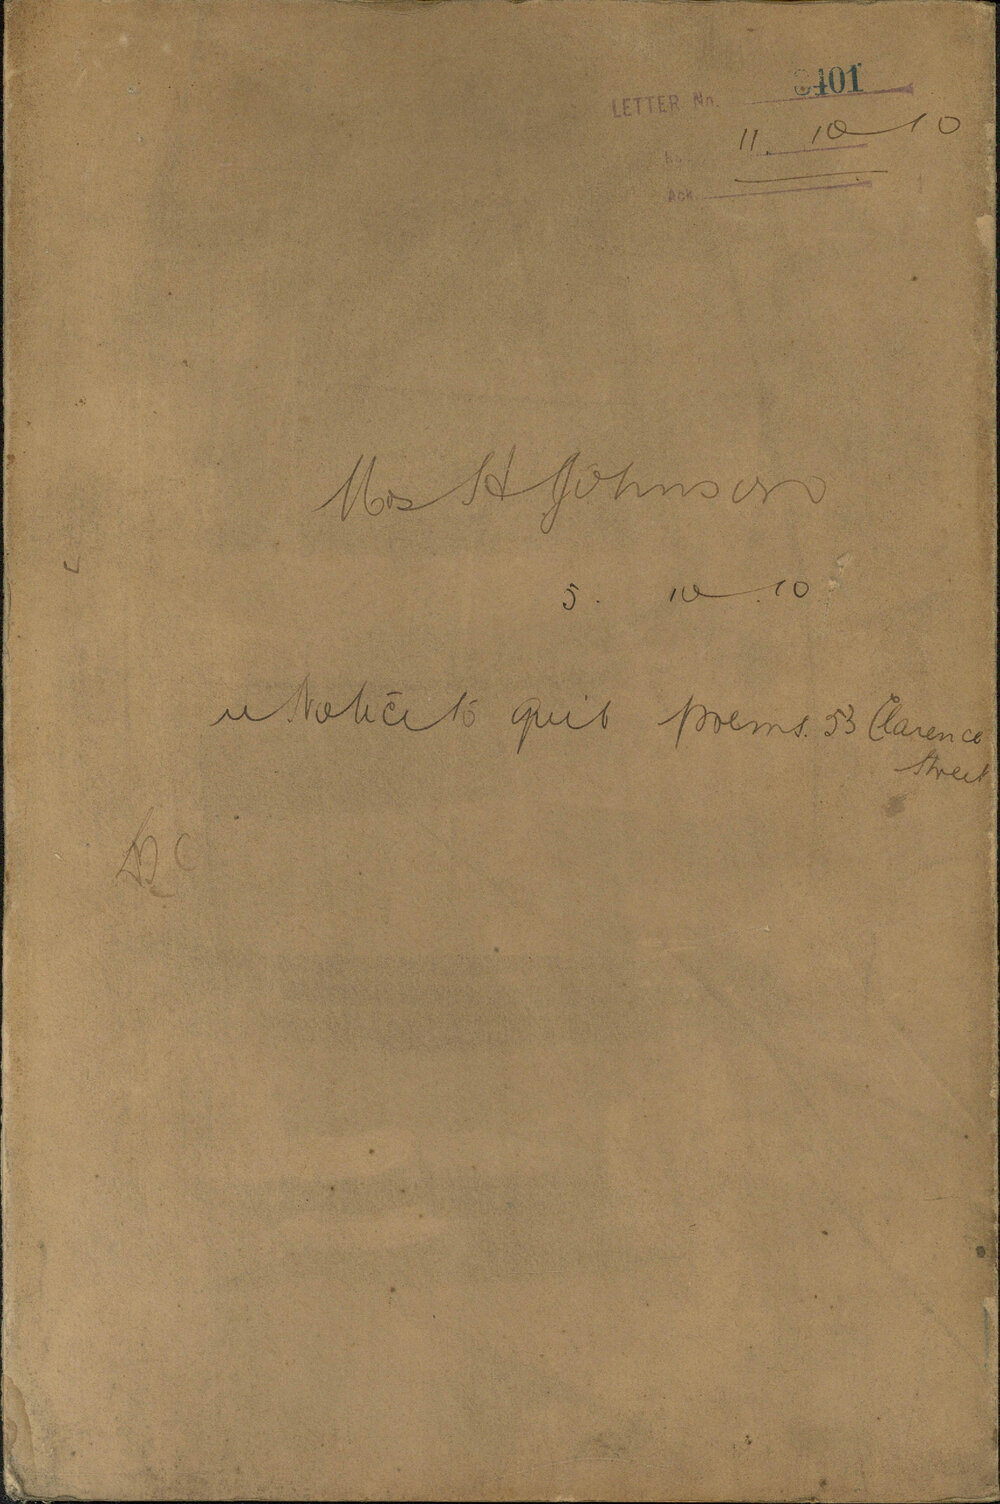 LETTER No. 3401
11. 10 10
Ack.
Mrs H Johnson
5. 10 . 10
re Notice to quit prems. 53 Clarence
Street